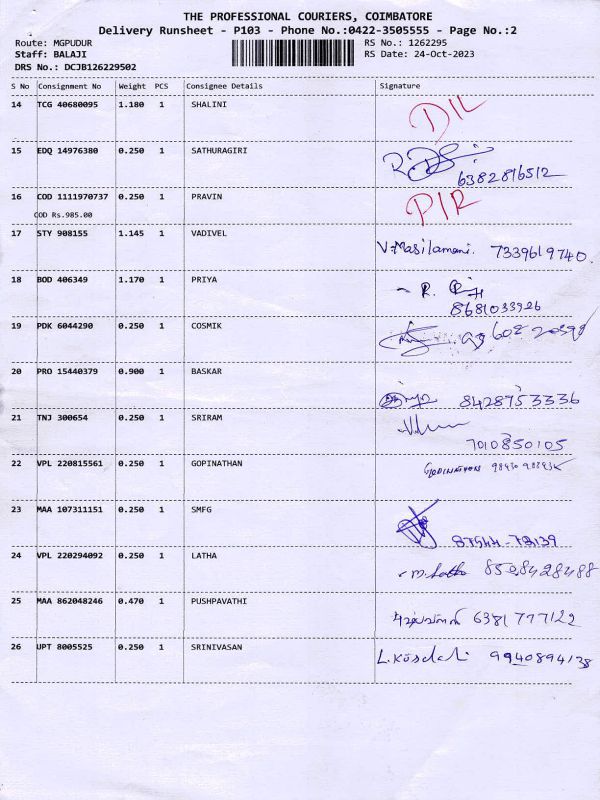 THE PROFESSIONAL COURIERS, COIMBATORE
Delivery Runsheet - P103 - Phone No.:0422-3505555 - Page No.:2
Route: MGPUDUR RS No.: 1262295
Staff: BALAJI RS Date: 24-Oct-2023
DRS No.: DCJB126229502
S No Consignment No Weight PCS Consignee Details Signature
14 TCG 40680095 1.180 1 SHALINI D/L
15 EDQ 14976380 0.250 1 SATHURAGIRI
6382816512
16 COD 1111970737 0.250 1 PRAVIN P/R
COD Rs.985.00
17 STY 908155 1.145 1 VADIVEL
V.Masilamani. 7339619740.
18 BOD 406349 1.170 1 PRIYA
8681033926
19 PDK 6044290 0.250 1 COSMIK
20 PRO 15440379 0.900 1 BASKAR
8428753336
21 TNJ 300654 0.250 1 SRIRAM
7010850105
22 VPL 220815561 0.250 1 GOPINATHAN GOPINATHAN
23 MAA 107311151 0.250 1 SMFG
87544-73139
24 VPL 220294092 0.250 1 LATHA
8508428488
25 MAA 862048246 0.470 1 PUSHPAVATHI
6381777122
26 UPT 8005525 0.250 1 SRINIVASAN
9940894138